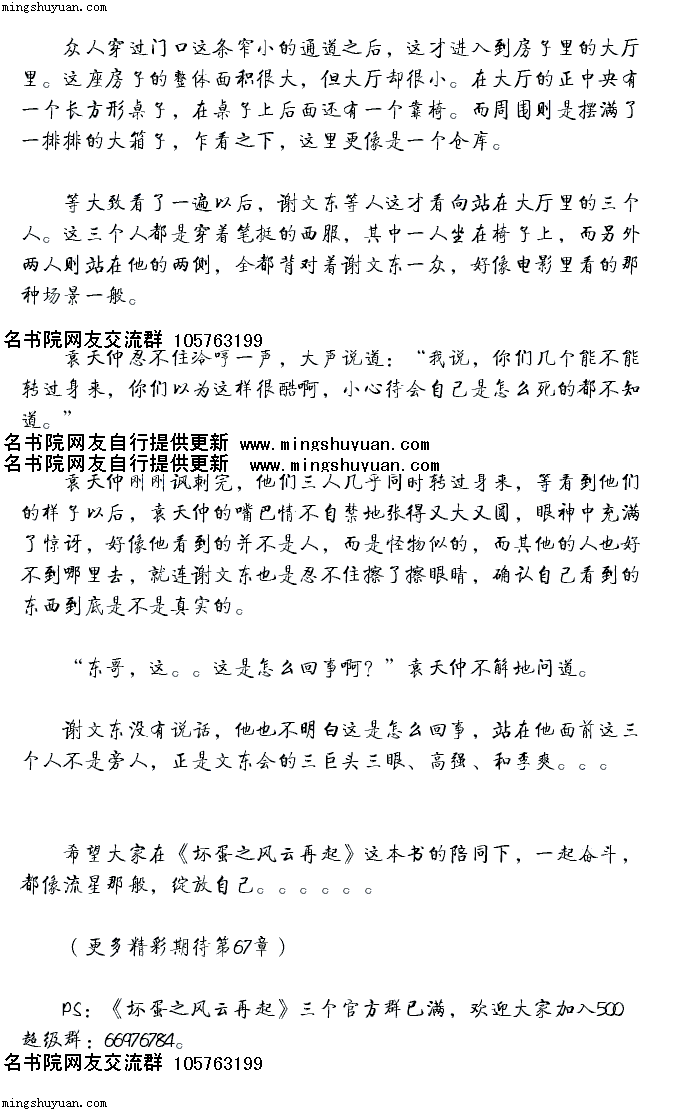 mingshuyuan.com
众人穿过门口这条窄小的通道之后，这才进入到房子里的大厅
里。这座房子的整体面积很大，但大厅却很小。在大厅的正中央有
一个长方形桌子，在桌子上后面还有一个靠椅。而周围则是摆满了
一排排的大箱子，乍看之下，这里更像是一个仓库。
等大致看了一遍以后，谢文东等人这才看向站在大厅里的三个
人。这三个人都是穿着笔挺的西服，其中一人坐在椅子上，而另外
两人则站在他的两侧，全都背对着谢文东一众，好像电影里看的那
种场景一般。
名书院网友交流群 105763199
袁天仲忍不住冷哼一声，大声说道：“我说，你们几个能不能
转过身来，你们以为这样很酷啊，小心待会自己是怎么死的都不知
道。”
名书院网友自行提供更新 www.mingshuyuan.com
名书院网友自行提供更新 www.mingshuyuan.com
袁天仲刚刚讽刺完，他们三人几乎同时转过身来，等看到他们
的样子以后，袁天仲的嘴巴情不自禁地张得又大又圆，眼神中充满
了惊讶，好像他看到的并不是人，而是怪物似的，而其他的人也好
不到哪里去，就连谢文东也是忍不住擦了擦眼睛，确认自己看到的
东西到底是不是真实的。
“东哥，这。。这是怎么回事啊？”袁天仲不解地问道。
谢文东没有说话，他也不明白这是怎么回事，站在他面前这三
个人不是旁人，正是文东会的三巨头三眼、高强、和李爽。。。
希望大家在《坏蛋之风云再起》这本书的陪同下，一起奋斗，
都像流星那般，绽放自己。。。。。。
（更多精彩期待第67章）
PS：《坏蛋之风云再起》三个官方群已满，欢迎大家加入500
超级群：66976784。
名书院网友交流群 105763199
mingshuyuan.com